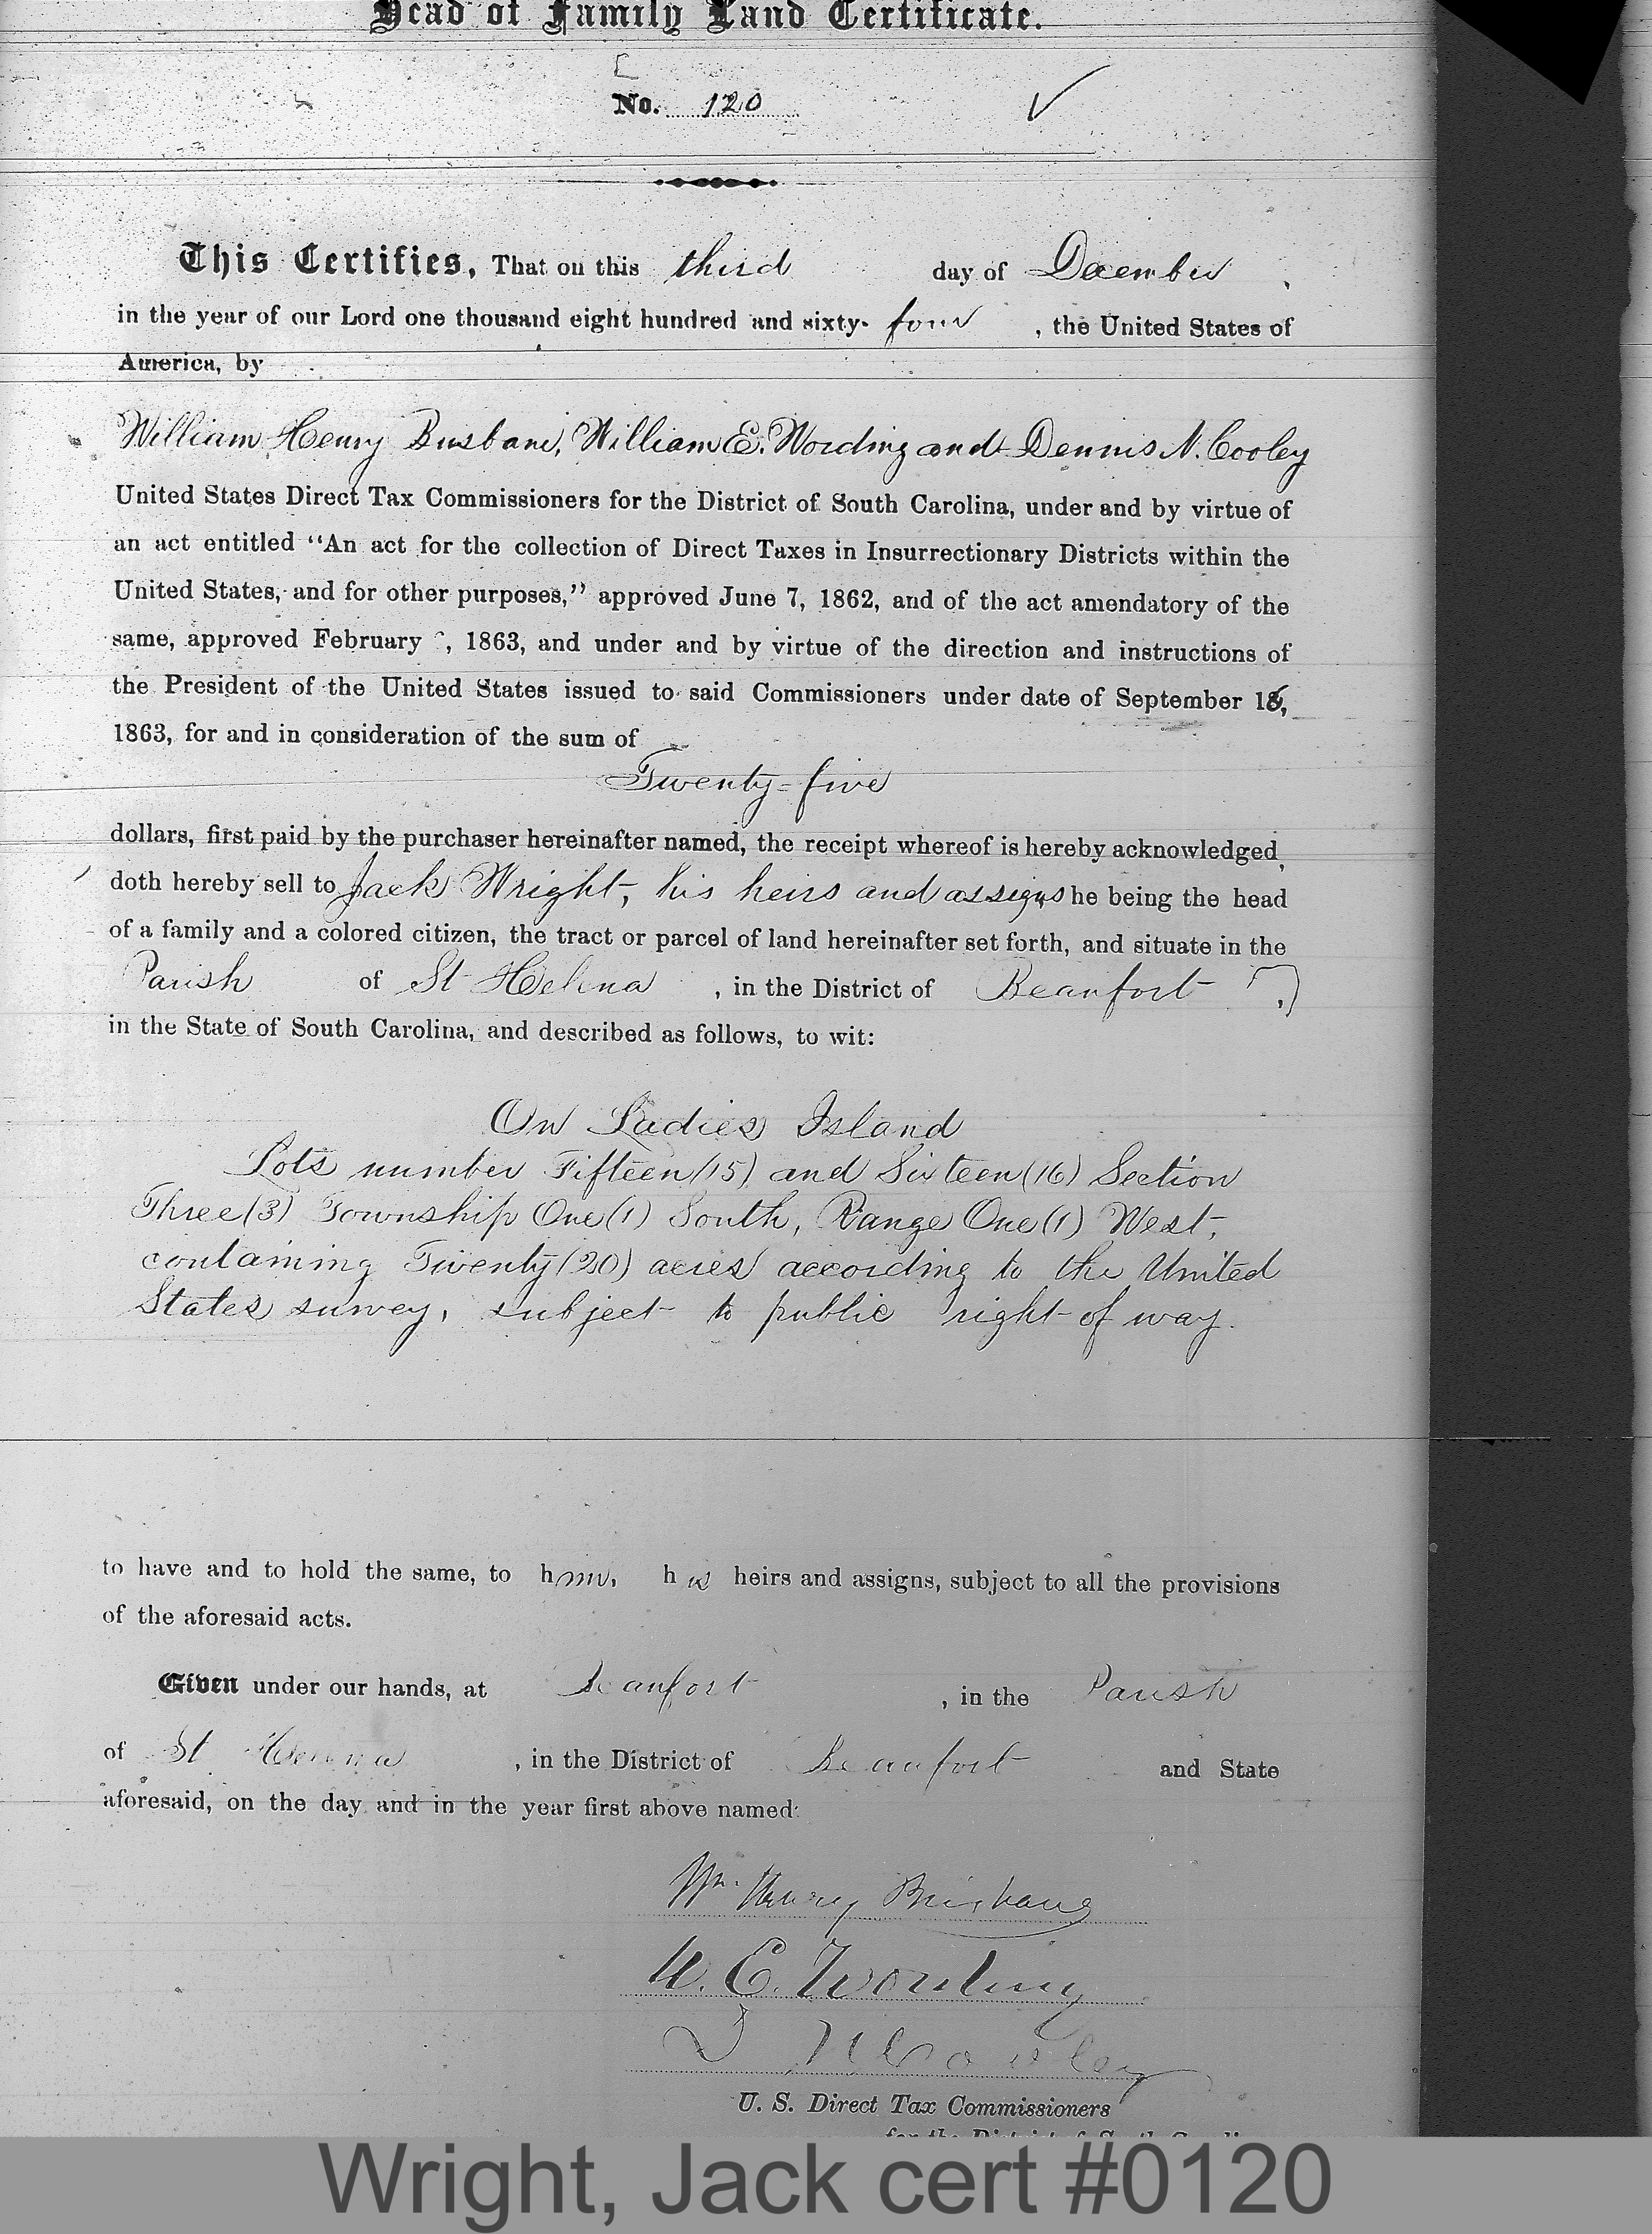 Head of Family Land Certificate.
No. 120
This Certifies, That on this third day of December,
in the year of our Lord one thousand eight hundred and sixty-four, the United States of
America, by
William Henry Brisbane, William E. Wording and Dennis N. Cooley
United States Direct Tax Commissioners for the District of South Carolina, under and by virtue of
an act entitled "An act for the collection of Direct Taxes in Insurrectionary Districts within the
United States, and for other purposes," approved June 7, 1862, and of the act amendatory of the
same, approved February , 1863, and under and by virtue of the direction and instructions of
the President of the United States issued to said Commissioners under date of September 16,
1863, for and in consideration of the sum of
Twenty-five
dollars, first paid by the purchaser hereinafter named, the receipt whereof is hereby acknowledged,
doth hereby sell to Jack Wright, his heirs and assigns he being the head
of a family and a colored citizen, the tract or parcel of land hereinafter set forth, and situate in the
Parish of St Helena, in the District of Beaufort,
in the State of South Carolina, and described as follows, to wit:
On Ladies Island
Lots number Fifteen (15) and Sixteen (16) Section
Three (3) Township One (1) South, Range One (1) West,
containing Twenty (20) acres according to the United
States survey, subject to public right of way.
to have and to hold the same, to him, his heirs and assigns, subject to all the provisions
of the aforesaid acts.
Given under our hands, at Beaufort, in the Parish
of St Helena, in the District of Beaufort and State
aforesaid, on the day and in the year first above named.
Wm. Henry Brisbane
W. E. Wording
D N Cooley
U. S. Direct Tax Commissioners
for the District of South Carolina
Wright, Jack cert #0120